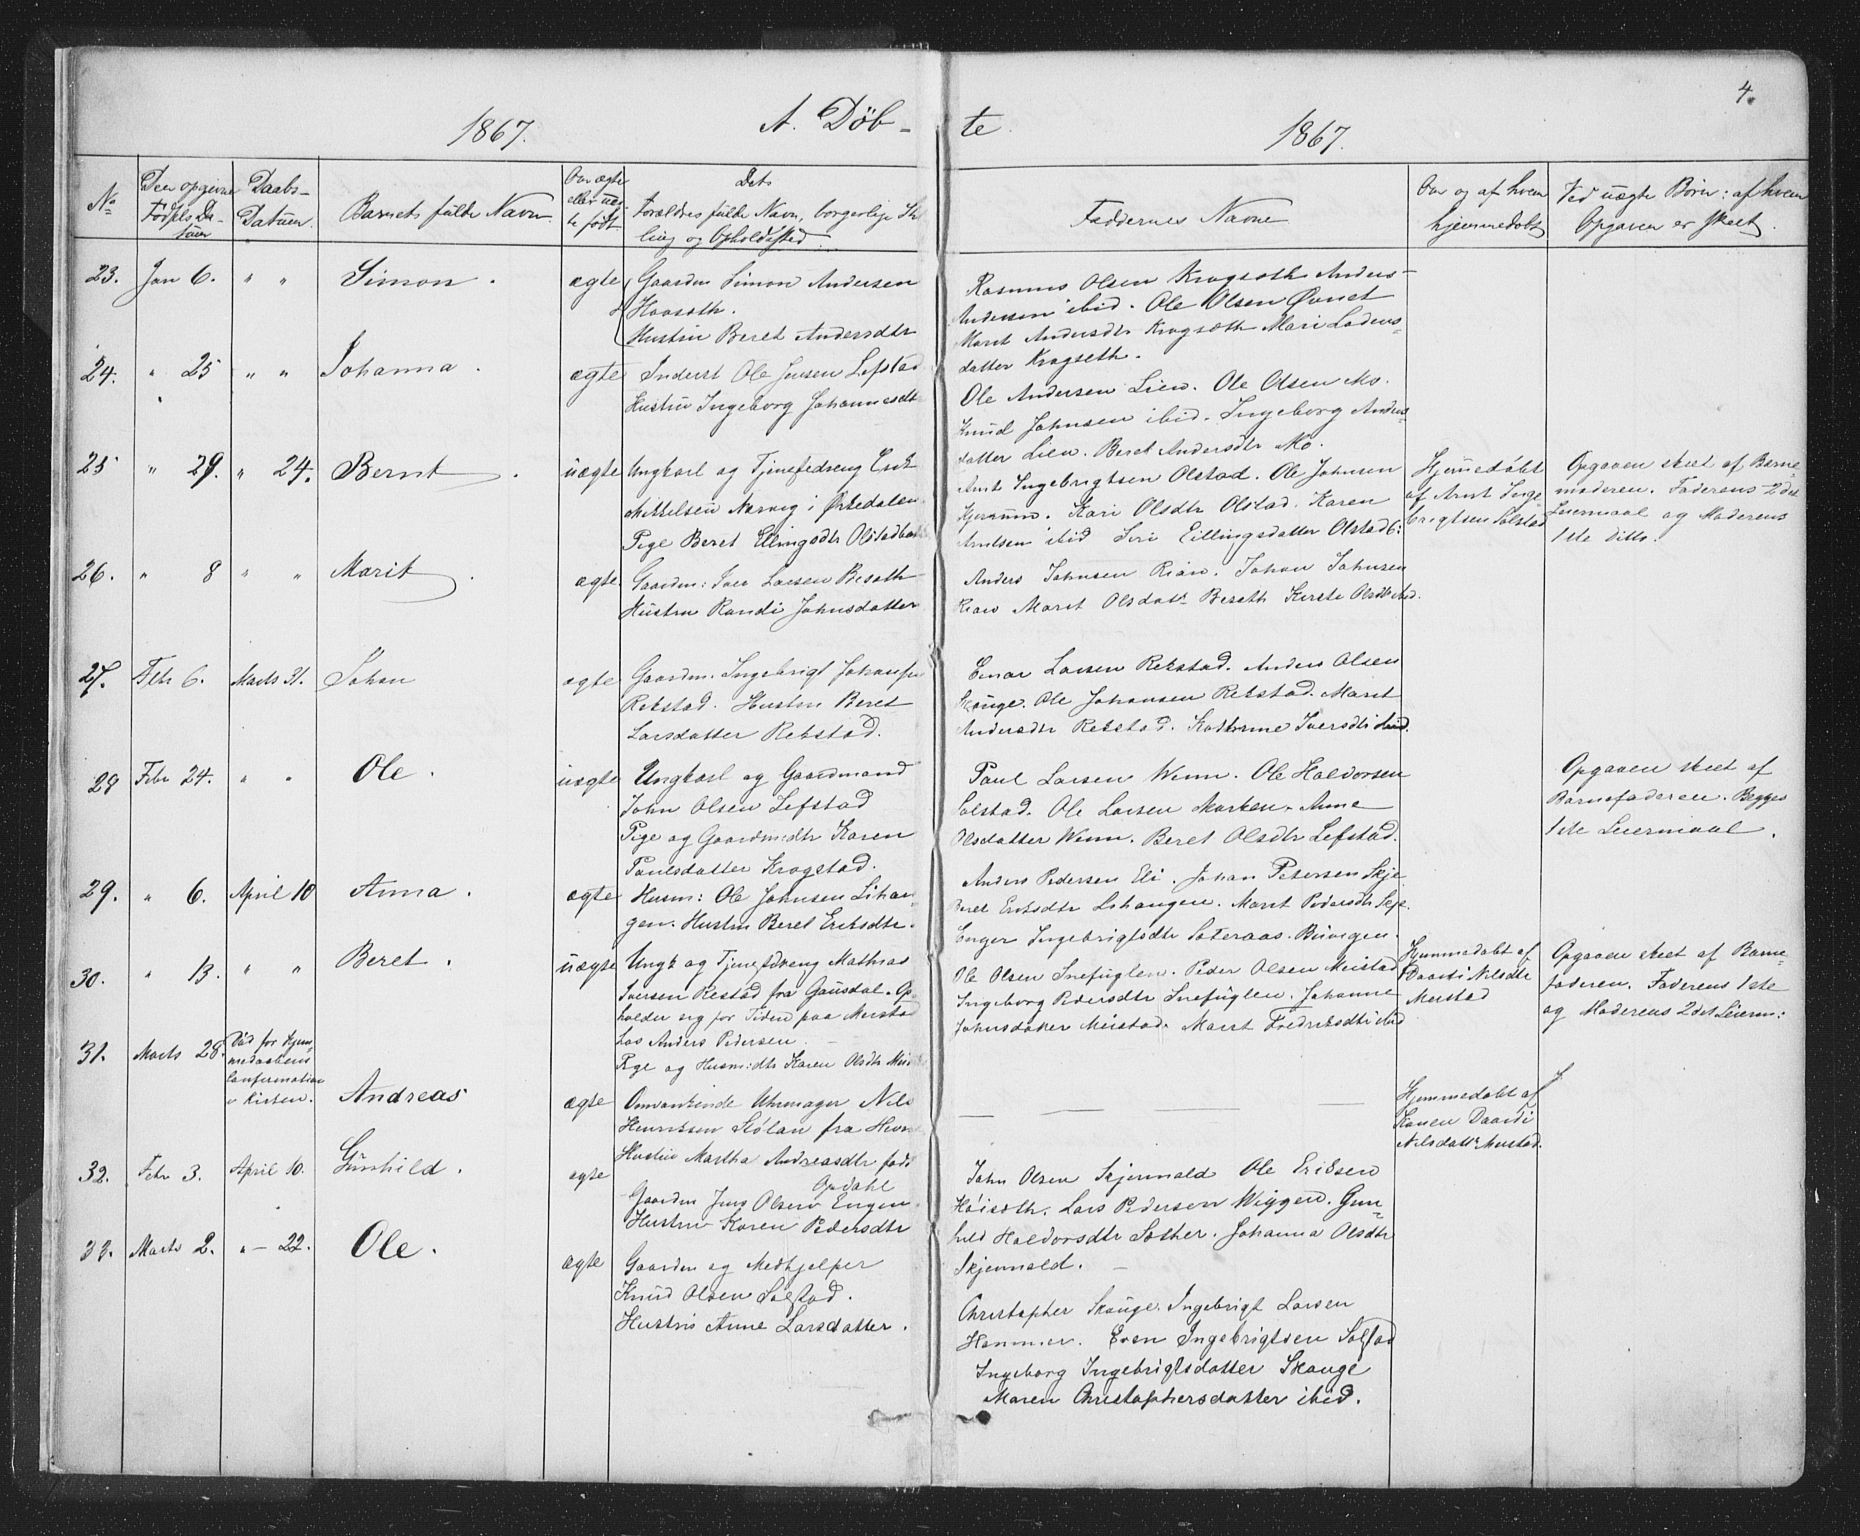 4.
1867. A. Döb- te. 1867.
No
Den opgivne Fødsels Datum
Daabs-Datum
Barnets fulde Navn
Om ægte eller uægte født
Dets Forældres fulde Navn, borgerlige Stilling og Opholdssted
Faddernes Navne
Om og af hvem hjemmedøbt
Ved uægte Børn: af hvem Opgaven er skeet.
23. Jan 6. " " Simon. ægte
Gaardm Simon Andersen
Hustru Beret Andersdtr
Rasmus Olsen Krogsæth Anders
Andersen ibid. Ole Olsen
Maret Andersdtr Krogsæth Mari Ladens-
datter Krogseth.
24. " 25 " " Johanna. ægte
Inderst Ole Jensen Lefstad
Hustru Ingeborg Johannesdtr
Ole Andersen Lien. Ole Olsen Mo.
Knud Johnsen ibid. Ingeborg Anders-
datter Lien. Beret Andersdtr Mo.
25 " 29. " 24. Bernt. uægte
Ungkarl og Tjenestedreng Erik
Mikkelsen Narvig i Ørkedalen
Pige Beret Ellingsdtr
Arnt Ingebrigtsen Olstad. Ole Johnsen
Kari Olsdtr Olstad. Karen
Arntsen ibid Siri Eillingsdatter
Hjemmedøbt
af Arnt Inge-
brigtsen Solstad
Opgaven skeet af Barne-
moderen. Faderens 2det
Leiermaal og Moderens
1ste ditto.
26. " 8 " " Marit. ægte
Gaardm: Iver Larsen Besæth
Hustru Randi Johnsdatter
Anders Johnsen Rian. Johan Johnsen
Rian Marit Olsdatr Beseth Kirsti Olsdtr ibid.
27. Febr 6. Marts 31. Johan ægte
Gaardm. Ingebrigt Johansen
Rekstad. Hustru Beret
Larsdatter Rekstad.
Einar Larsen Rekstad. Anders Olsen
Skauge. Ole Johansen Rekstad. Marit
Andersdtr Rekstad. Kathrine Iversdtr ibid.
28 Febr 24. " " Ole. uægte
Ungkarl og Gaardmand
John Olsen Lefstad
Pige og Gaardmdtr Karen
Paulsdatter Krogstad.
Paul Larsen Winn. Ole Haldorsen
Eolstad. Ole Larsen Marken. Anne
Olsdatter Winn. Beret Olsdtr Lefstad.
Opgaven skeet af
Barnefaderen. Begges
1ste Leiermaal.
29. " 6. April 10 Anna. ægte
Husm: Ole Johnsen Lihau-
gen. Hustru Beret Eriksdtr.
Anders Pedersen Eli. Johan Petersen Skje
Beret Eriksdtr Lihaugen. Marit Pedersdtr Skje.
Enger Ingebrigtsdtr Søteraas. Buvigen.
30. " 13. " " Beret. uægte
Ungk og Tjenestdreng Mathias
Iversen Restad fra Gausdal. Op-
holder sig for Tiden paa Meistad
hos Anders Pedersen.
Pige og Husm:dtr Karen Olsdtr
Ole Olsen Snefuglen. Peder Olsen Meistad
Ingeborg Pedersdtr Snefuglen. Johanne
Johnsdatter Meistad. Marit Fredriksdtr ibid
Hjemmedøbt af
Daardi Nilsdtr
Meistad
Opgaven skeet af Barne-
faderen. Faderens 1ste
og Moderens 2det Leierm:
31. Marts 28. Død før Hjem-
medaabens
Confirmation
i Kirken. Andreas ægte
Omvankende Uhrmager Nils
Henriksen Stølan fra Hevne
Hustru Martha Andreasdtr født
Opdahl
— — — —
Hjemmedøbt af
Konen Daardi
Nilsdatr Meistad.
32. Febr 3. April 10. Gunhild. ægte
Gaardm Jens Olsen Engen
Hustru Karen Pedersdtr
John Olsen Skjernald Ole Eriksen
Høisæth. Lars Pedersen Wiggen. Gun-
hild Haldorsdtr Sæther. Johanna Olsdtr
Skjernald.
33. Marts 2. " — 22. Ole. ægte
Gaardm og Medhjelper
Knud Olsen Solstad.
Hustru Anne Larsdatter.
Christopher Skauge. Ingebrigt Larsen
Hammer. Even Ingebrigtsen Solstad
Ingeborg Ingebrigtsdatter Skauge
Maren Christophersdatter ibid.